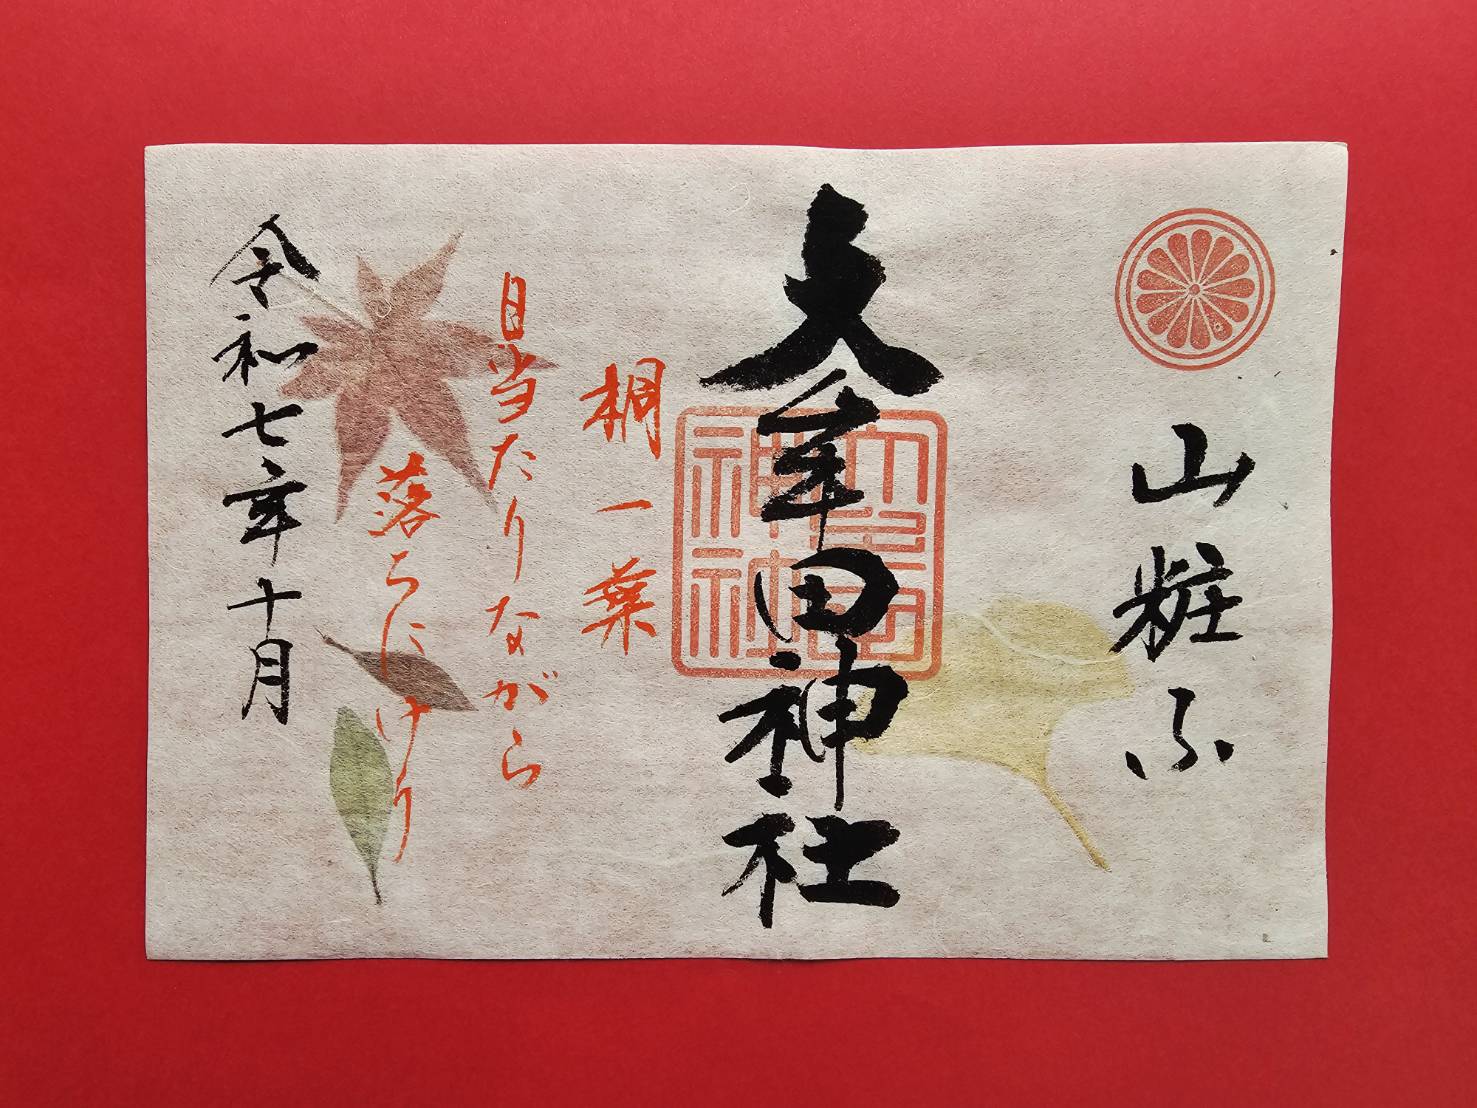 山粧ふ
大牟田神社
桐一葉
日当たりながら
落ちにけり
令和七年十月